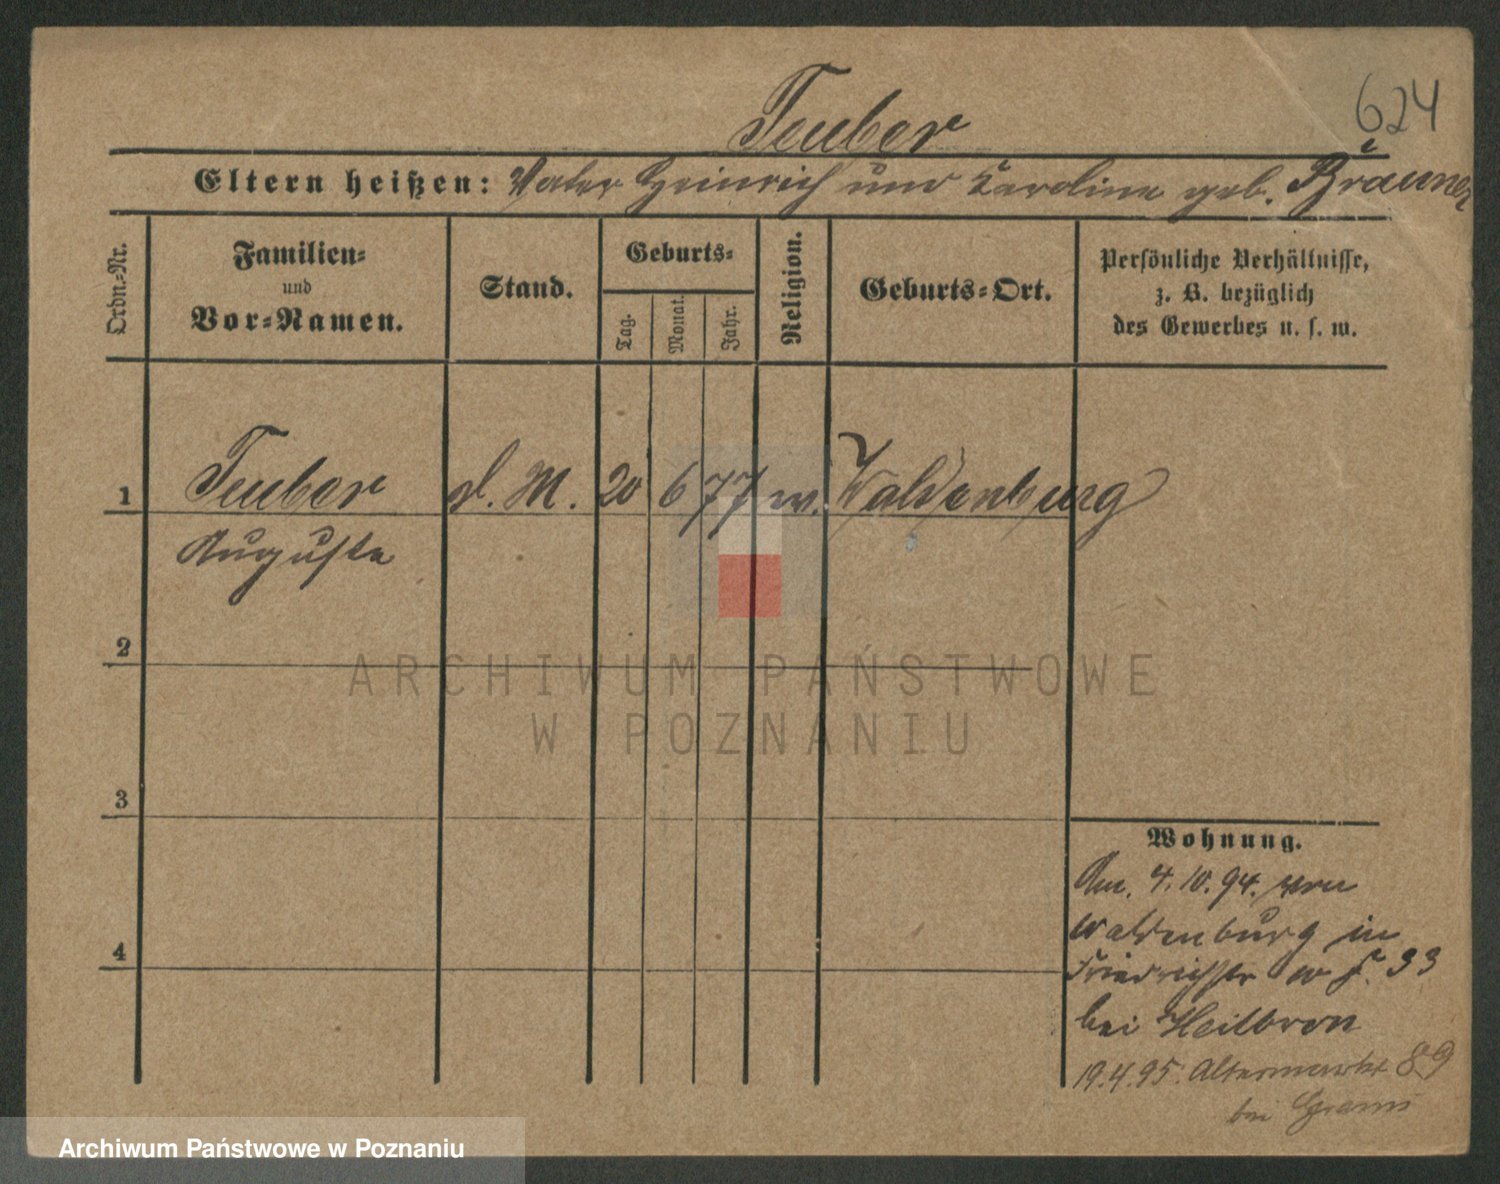 624
Teuber
Eltern heißen: Vater Heinrich und Karoline geb. Bräuner
Ordn.-Nr.
Familien-
und
Vor-Namen.
Stand.
Geburts-
Tag.
Monat.
Jahr.
Religion.
Geburts-Ort.
Persönliche Verhältnisse,
z. B. bezüglich
des Gewerbes u. s. w.
1 Teuber d. M. 20 6 77 w. Waldenburg
Auguste
2
3
4
Wohnung.
Am. 4.10.94. von
Waldenburg in
Friedrichstr 33
bei Heilbron
19.4.95. Altermarkt 89
bei
ARCHIWUM PAŃSTWOWE
W POZNANIU
Archiwum Państwowe w Poznaniu